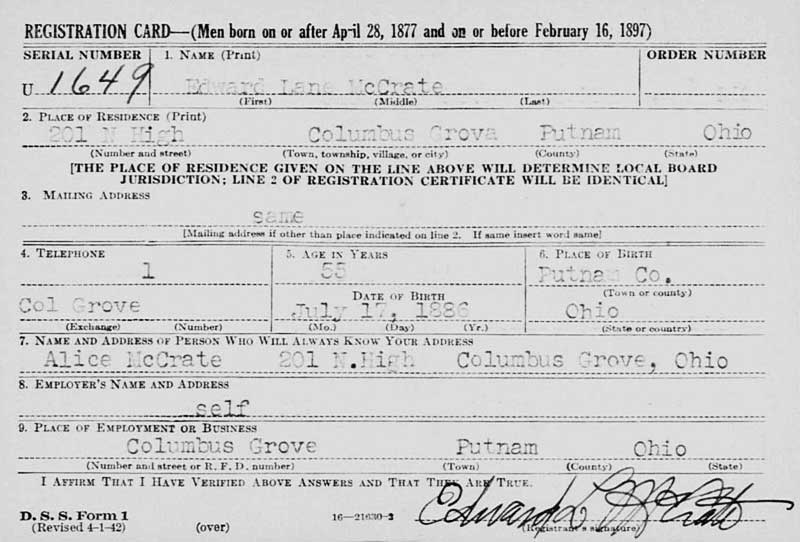 REGISTRATION CARD—(Men born on or after April 28, 1877 and on or before February 16, 1897)
SERIAL NUMBER 1. NAME (Print) ORDER NUMBER
U 1649 Edward Lane McCrate
(First) (Middle) (Last)
2. PLACE OF RESIDENCE (Print)
201 N High Columbus Grova Putnam Ohio
(Number and street) (Town, township, village, or city) (County) (State)
[THE PLACE OF RESIDENCE GIVEN ON THE LINE ABOVE WILL DETERMINE LOCAL BOARD
JURISDICTION; LINE 2 OF REGISTRATION CERTIFICATE WILL BE IDENTICAL]
3. MAILING ADDRESS
same
[Mailing address if other than place indicated on line 2. If same insert word same]
4. TELEPHONE 5. AGE IN YEARS 6. PLACE OF BIRTH
1 55 Putnam Co.
DATE OF BIRTH (Town or county)
Col Grove July 17, 1886 Ohio
(Exchange) (Number) (Mo.) (Day) (Yr.) (State or country)
7. NAME AND ADDRESS OF PERSON WHO WILL ALWAYS KNOW YOUR ADDRESS
Alice McCrate 201 N.High Columbus Grove, Ohio
8. EMPLOYER'S NAME AND ADDRESS
self
9. PLACE OF EMPLOYMENT OR BUSINESS
Columbus Grove Putnam Ohio
(Number and street or R. F. D. number) (Town) (County) (State)
I AFFIRM THAT I HAVE VERIFIED ABOVE ANSWERS AND THAT THEY ARE TRUE.
Edward L McCrate
D. S. S. Form 1 16—21630-2 (Registrant's signature)
(Revised 4-1-42) (over)